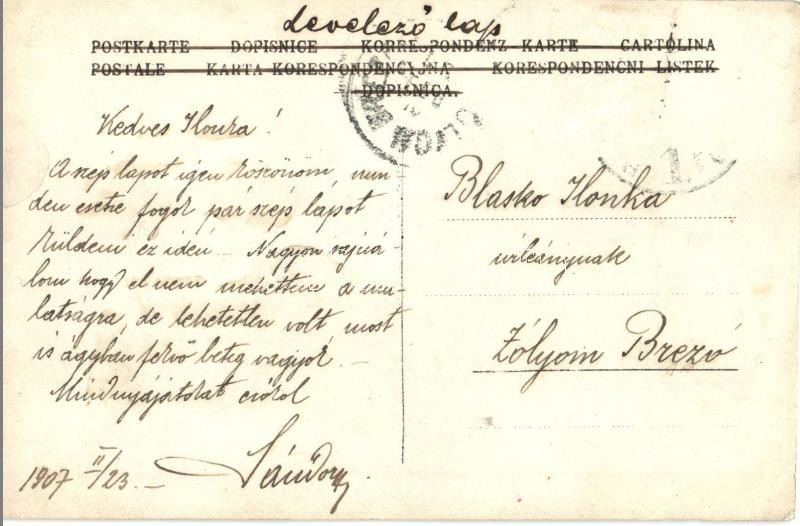 Levelező lap
POSTKARTE DOPISNICE KORRESPONDENZ-KARTE CARTOLINA
POSTALE KARTA KORESPONDENCYJNA KORESPONDENČNI LISTEK
DOPISNICA.
Kedves Ilonka!
A szép lapot igen köszönöm, min
den esetre fogok pár szép lapot
küldeni ez idén – Nagyon sajná-
lom hogy el nem mehettem a mu-
latságra, de lehetetlen volt most
is ágyban fekvő beteg vagyok. –
Mindnyájatokat csókol
Sándor
1907 II/23. –
Blasko Ilonka
úrleánynak
Zólyom Brezó